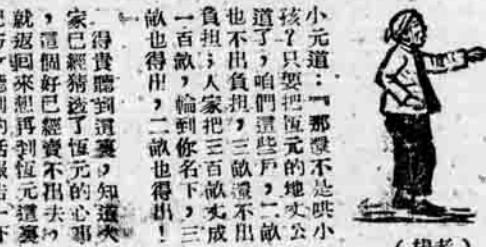 小元道：『那還不是哄小
孩？只要把恆元的地丈公
道了，咱們這些戶，二畝
也不出負担，三畝還不出
負担；人家把三百畝丈成
一百畝，輪到你名下，三
畝也得出，二畝也得出！
得貴聽到這裏，知道大
家已經猜透了恆元的心事
，這個好已經賣不出去，
就返回來想再到恆元這裏